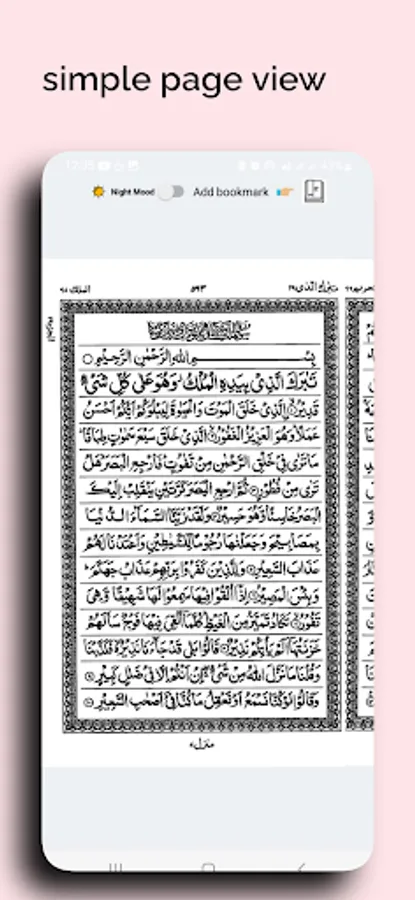 simple page view
12:35
Night Mood Add bookmark
الملك ٦٧ ٥٩٣ تبٰرك الذی ٢٩
بِسْـــمِ اللهِ الرَّحْمٰنِ الرَّحِيْمِ
تَبٰرَكَ الَّذِيْ بِيَدِهِ الْمُلْكُ وَهُوَ عَلٰى كُلِّ شَيْءٍ
قَدِيْرُ ۨالَّذِيْ خَلَقَ الْمَوْتَ وَالْحَيٰوةَ لِيَبْلُوَكُمْ اَيُّكُمْ اَحْسَنُ
عَمَلًا وَهُوَ الْعَزِيْزُ الْغَفُوْرُ الَّذِيْ خَلَقَ سَبْعَ سَمٰوٰتٍ طِبَاقًا
مَا تَرٰى فِيْ خَلْقِ الرَّحْمٰنِ مِنْ تَفٰوُتٍ فَارْجِعِ الْبَصَرَ هَلْ
تَرٰى مِنْ فُطُوْرٍ ثُمَّ ارْجِعِ الْبَصَرَ كَرَّتَيْنِ يَنْقَلِبْ اِلَيْكَ
الْبَصَرُ خَاسِئًا وَّهُوَ حَسِيْرٌ وَلَقَدْ زَيَّنَّا السَّمَآءَ الدُّنْيَا
بِمَصَابِيْحَ وَجَعَلْنٰهَا رُجُوْمًا لِّلشَّيٰطِيْنِ وَاَعْتَدْنَا لَهُمْ
عَذَابَ السَّعِيْرِ وَلِلَّذِيْنَ كَفَرُوْا بِرَبِّهِمْ عَذَابُ جَهَنَّمَ
وَبِئْسَ الْمَصِيْرُ اِذَآ اُلْقُوْا فِيْهَا سَمِعُوْا لَهَا شَهِيْقًا وَّهِيَ
تَفُوْرُ تَكَادُ تَمَيَّزُ مِنَ الْغَيْظِ كُلَّمَآ اُلْقِيَ فِيْهَا فَوْجٌ سَاَلَهُمْ
خَزَنَتُهَآ اَلَمْ يَاْتِكُمْ نَذِيْرٌ قَالُوْا بَلٰى قَدْ جَآءَنَا نَذِيْرٌ فَكَذَّبْنَا
وَقُلْنَا مَا نَزَّلَ اللهُ مِنْ شَيْءٍ اِنْ اَنْتُمْ اِلَّا فِيْ ضَلٰلٍ كَبِيْرٍ
وَقَالُوْا لَوْ كُنَّا نَسْمَعُ اَوْ نَعْقِلُ مَا كُنَّا فِيْ اَصْحٰبِ السَّعِيْرِ
منزل ٧